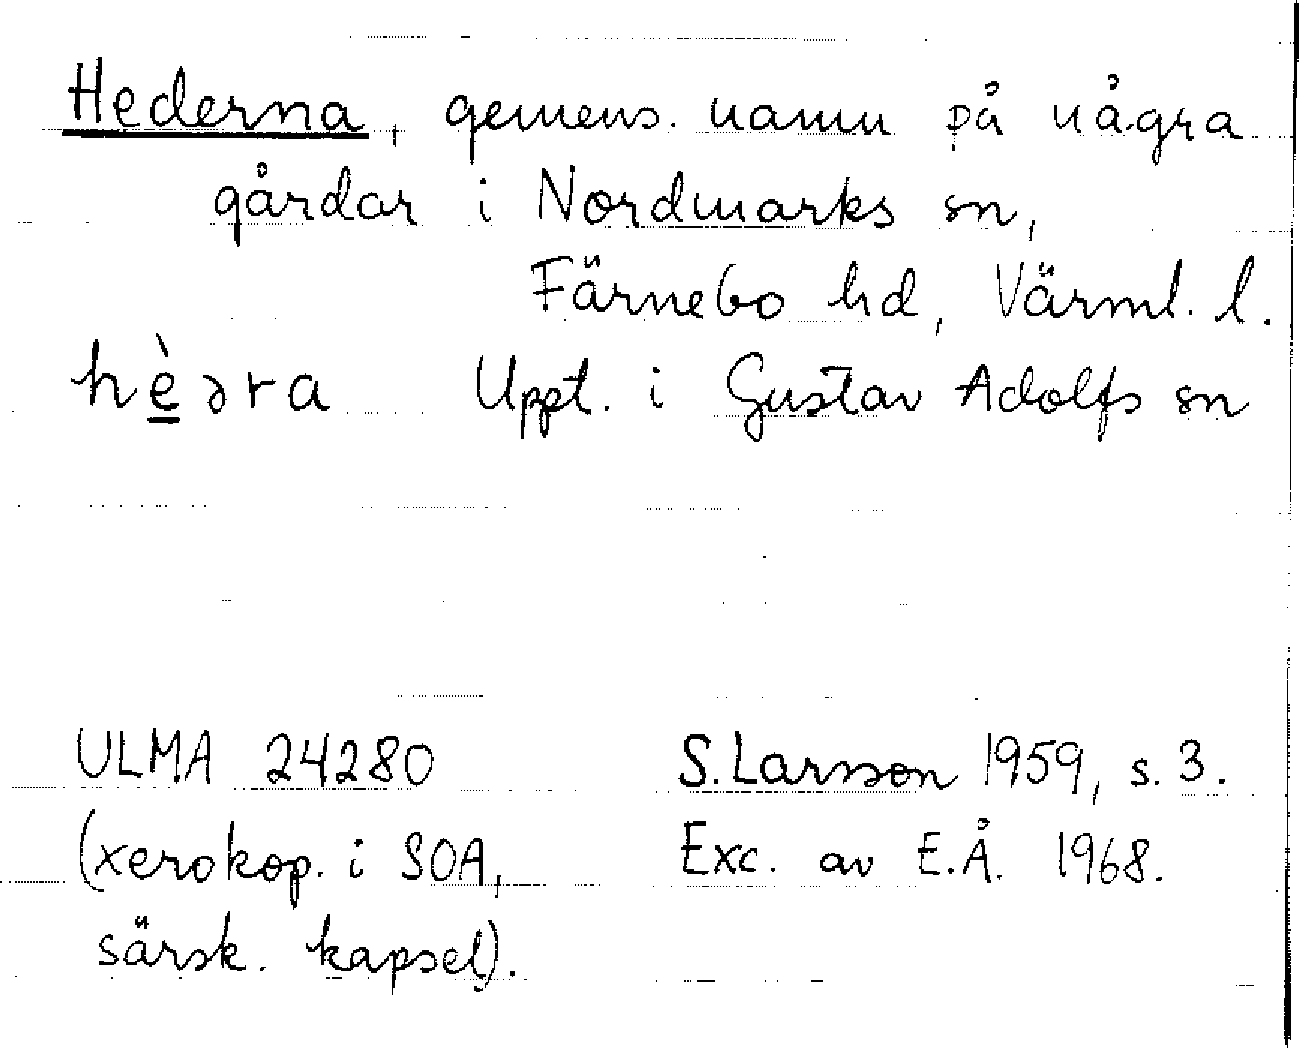 Hederna, gemens. namn på några
gårdar i Nordmarks sn,
Färnebo hd, Värml. l.
hè̲əra Uppt. i Gustav Adolfs sn
ULMA 24280 S. Larsson 1959, s. 3.
(xerokop. i SOA, Exc. av E.Å. 1968.
särsk. kapsel).